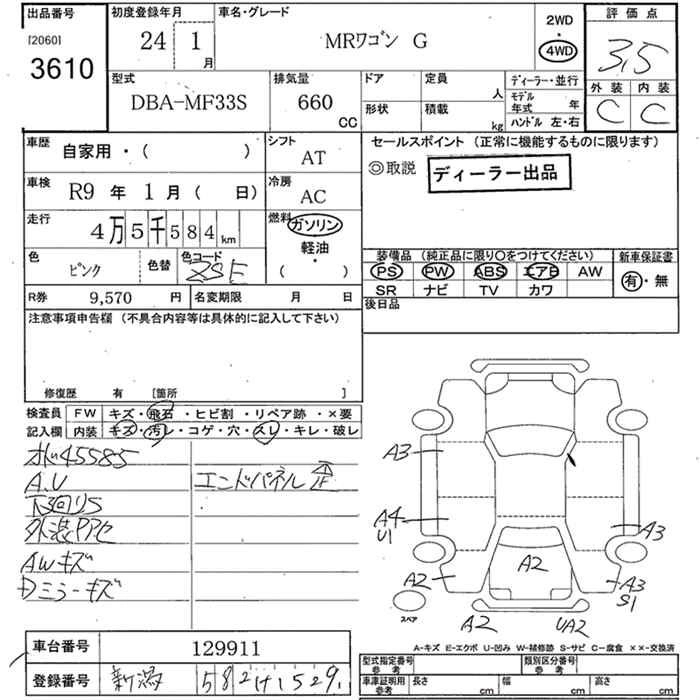 出品番号 初度登録年月 車名・グレード 2WD 評価点
[2060] 24 1月 MRワゴン G ・
3610 4WD 3.5
型式 排気量 ドア 定員 人 ディーラー・並行 外装 内装
DBA-MF33S 660 CC 形状 積載 kg モデル年式 年 C C
ハンドル 左・右
車歴 自家用・( ) シフト AT セールスポイント (正常に機能するものに限ります)
車検 R9年1月( 日) 冷房 AC ◎取説 ディーラー出品
走行 4万5千584km 燃料 ガソリン・軽油・( )
色 ピンク 色替 色コード ZSE 装備品 (純正品に限り〇をつけてください) 新車保証書
PS PW ABS エアB AW 有・無
SR ナビ TV カワ
R券 9,570円 名変期限 月 日 後日品
注意事項申告欄 (不具合内容等は具体的に記入して下さい)
修復歴 有 [箇所 ]
検査員 FW キズ・飛石・ヒビ割・リペア跡・×要
記入欄 内装 キズ・汚レ・コゲ・穴・スレ・キレ・破レ
45585
A.U エンドパネル歪
下回りS
外装Pアセ
AWキズ
Dミラーキズ
A3
A4
U1
A2
A3
A3
S1
A2
A2
UA2
スペア
A-キズ E-エクボ U-凹み W-補修跡 S-サビ C-腐食 ××-交換済
車台番号 129911
登録番号 新潟 58
型式指定番号 参考 類別区分番号 参考
車庫証明用 参考 長さ cm 幅 cm 高さ cm